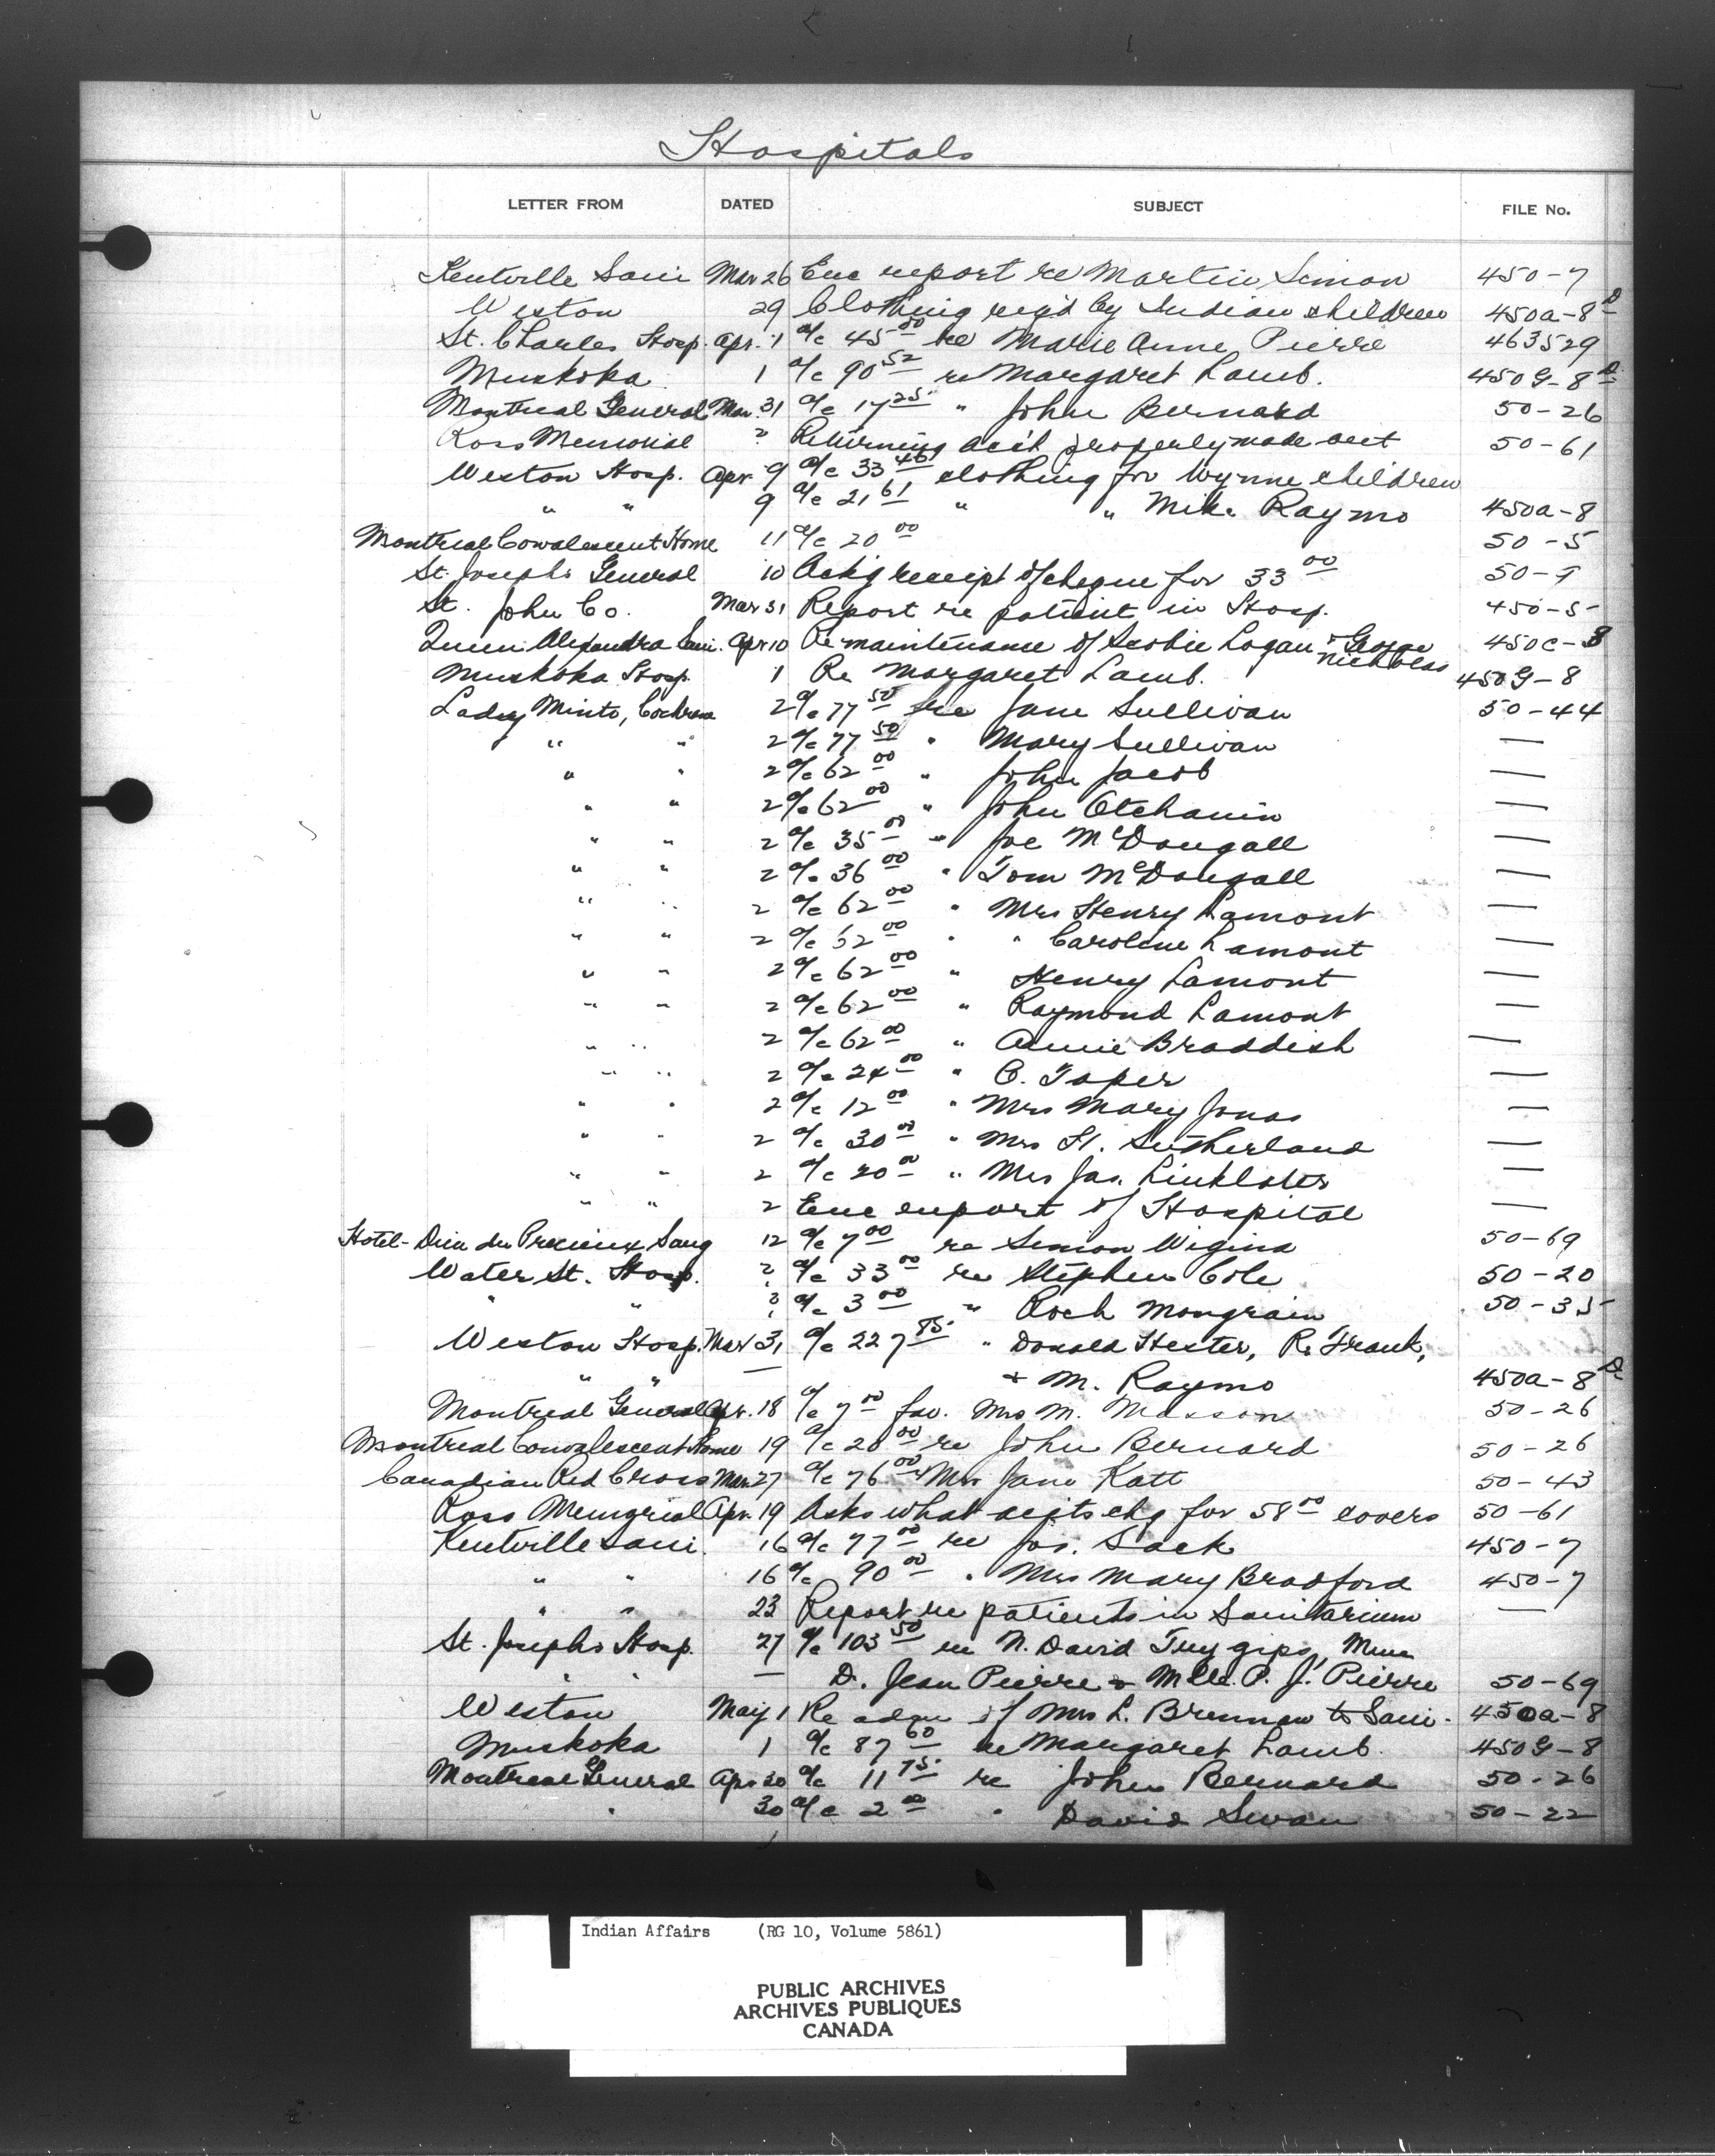 Hospitals
LETTER FROM DATED SUBJECT FILE No.
Kentville Sani Mar 26 Enc report re Martin Simon 450-7
Weston 29 Clothing reqd by Indian children 450a-8 D
St. Charles Hosp. Apr. 1 a/c 45 00 re Marie Anne Pierre 463529
Muskoka 1 a/c 90 52 re Margaret Lamb. 450G-8 D
Montreal General Mar. 31 a/c 17 25 " John Bernard 50-26
Ross Memorial ? Returning acct properly made out 50-61
Weston Hosp. Apr. 9 a/c 33 46 clothing for Wynne children
" " 9 a/c 21 61 " " Mike Raymo 450a-8
Montreal Convalescent Home 11 a/c 20 00 50-5
St. Josephs General 10 Ackg receipt of cheque for 33 00 50-9
St. John Co. Mar 31 Report re patient in Hosp. 450-5
Queen Alexandra Sani. Apr 10 Re maintenance of Scobie Logan & George Nicholas 450c-8
Muskoka Hosp. 1 Re Margaret Lamb. 450G-8
Lady Minto, Cochrane 2 a/c 77 50 re Jane Sullivan 50-44
" " 2 a/c 77 50 " Mary Sullivan —
" " 2 a/c 62 00 " John Jacob —
" " 2 a/c 62 00 " John Otchanin —
" " 2 a/c 35 00 " Joe McDougall —
" " 2 a/c 36 00 " Tom McDougall —
" " 2 a/c 62 00 " Mrs Henry Lamont —
" " 2 a/c 52 00 " " Caroline Lamont —
" " 2 a/c 62 00 " Henry Lamont —
" " 2 a/c 62 00 " Raymond Lamont —
" " 2 a/c 62 00 " Annie Braddish —
" " 2 a/c 24 00 " C. Taper —
" " 2 a/c 12 00 " Mrs Mary Jonas —
" " 2 a/c 30 00 " Mrs H. Sutherland —
" " 2 a/c 20 00 " Mrs Jas. Linklater —
" " 2 Enc report of Hospital —
Hotel-Dieu du Precieux Sang 12 a/c 7 00 re Simon Wigina 50-69
Water St. Hosp. ? a/c 33 00 re Stephen Cole 50-20
" " ? a/c 3 00 " Roch Mongrain 50-35
Weston Hosp. Mar 31 a/c 227 85 " Donald Hester, R. Frank,
" " — & M. Raymo 450a-8 D
Montreal General Apr. 18 a/c 7 00 fav. Mrs M. Masson 50-26
Montreal Convalescent Home 19 a/c 20 00 re John Bernard 50-26
Canadian Red Cross Mar. 27 a/c 76 00 " Mrs Jane Katt 50-43
Ross Memorial Apr. 19 Asks what accts chq for 58 00 covers 50-61
Kentville Sani. 16 a/c 77 00 re Jos. Sack 450-7
" " 16 a/c 90 00 " Mrs Mary Bradford 450-7
" " 23 Report re patients in Sanitarium —
St. Josephs Hosp. 27 a/c 103 50 re N. David Mme
" " — D. Jean Pierre & Mlle. P. J. Pierre 50-69
Weston May 1 Re adm of Mrs L. Brennan to Sani. 450a-8
Muskoka 1 a/c 87 60 re Margaret Lamb. 450G-8
Montreal General Apr 30 a/c 11 75 re John Bernard 50-26
" 30 a/c 2 00 " David Swan 50-22
Indian Affairs (RG 10, Volume 5861)
PUBLIC ARCHIVES
ARCHIVES PUBLIQUES
CANADA